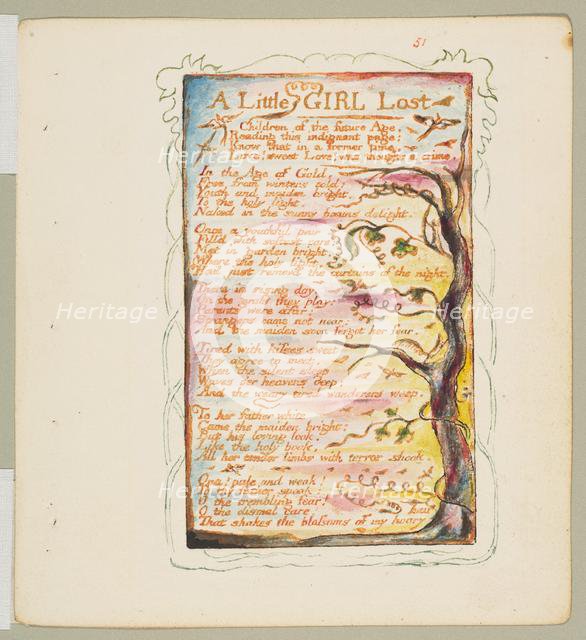 51
A Little GIRL Lost
Children of the future Age,
Reading this indignant page;
Know that in a former time,
Love! sweet Love! was thought a crime.
In the Age of Gold,
Free from winters cold:
Youth and maiden bright,
To the holy light,
Naked in the sunny beams delight.
Once a youthful pair
Fill'd with softest care:
Met in garden bright,
Where the holy light,
Had just remov'd the curtains of the night.
There in rising day,
On the grass they play:
Parents were afar:
Strangers came not near:
And the maiden soon forgot her fear.
Tired with kisses sweet
They agree to meet,
When the silent sleep
Waves o'er heavens deep;
And the weary tired wanderers weep.
To her father white
Came the maiden bright:
But his loving look,
Like the holy book,
All her tender limbs with terror shook.
Ona! pale and weak!
To thy father speak:
O the trembling fear!
O the dismal care! hair
That shakes the blossoms of my hoary
Heritage Heritage Heritage
Heritage Heritage Heritage
Heritage Heritage Heritage